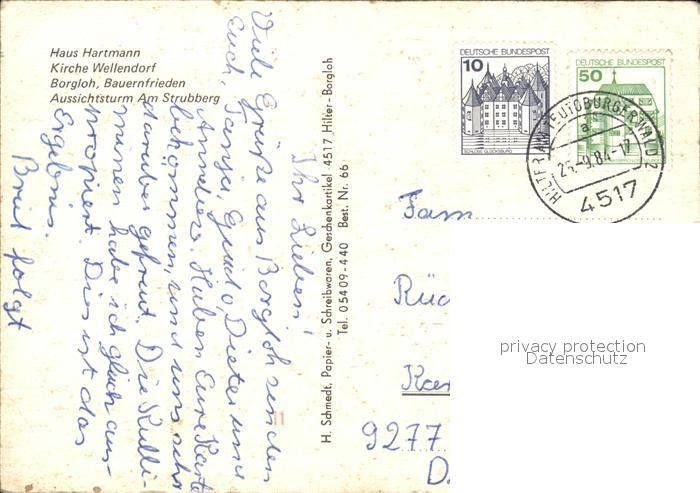 Haus Hartmann
Kirche Wellendorf
Borgloh, Bauernfrieden
Aussichtsturm Am Strubberg
Ihr Lieben!
Viele Grüße aus Borgloh senden
Euch, Tanja, Guido, Dieter und
Annelies. Haben Eure Karte
bekommen, und uns sehr
darüber gefreut. Die Kulli-
minen habe ich gleich aus-
probiert. Dies ist das
Ergebnis.
Brief folgt
H. Schmedt, Papier- u. Schreibwaren, Geschenkartikel 4517 Hilter-Borgloh
Tel. 05409-440 Best. Nr. 66
DEUTSCHE BUNDESPOST
10
SCHLOSS GLÜCKSBURG
DEUTSCHE BUNDESPOST
50
HILTER AM TEUTOBURGER WALD 2
a
25.-9.84-17
4517
Fam
Rüc
Kar
9277
D.
privacy protection
Datenschutz